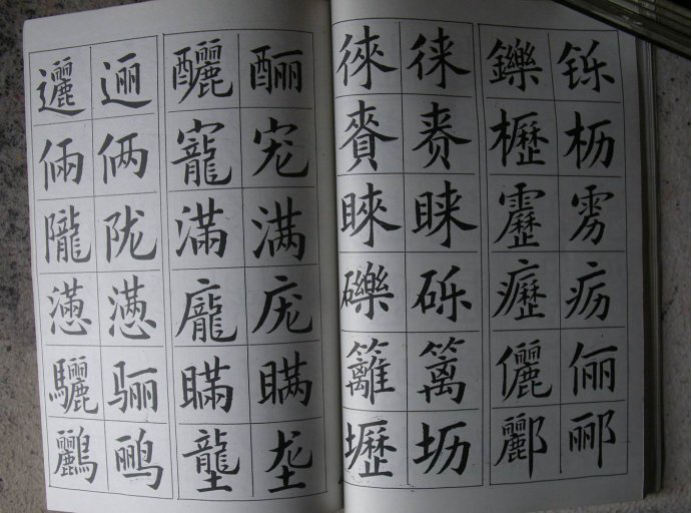 邐 逦 釃 酾
倆 俩 寵 宠
隴 陇 滿 满
懣 懑 龐 庞
驪 骊 瞞 瞒
鸝 鹂 壟 垄
徠 徕 鑠 铄
賚 赉 櫪 枥
睞 睐 靂 雳
礫 砾 癧 疬
籬 篱 儷 俪
壢 坜 酈 郦